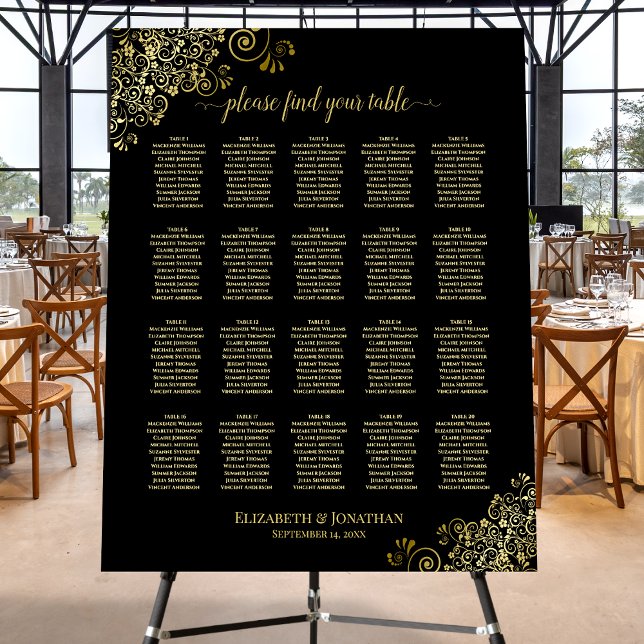 please find your table
TABLE 1
MACKENZIE WILLIAMS
ELIZABETH THOMPSON
CLAIRE JOHNSON
MICHAEL MITCHELL
SUZANNE SYLVESTER
JEREMY THOMAS
WILLIAM EDWARDS
SUMMER JACKSON
JULIA SILVERTON
VINCENT ANDERSON
TABLE 2
MACKENZIE WILLIAMS
ELIZABETH THOMPSON
CLAIRE JOHNSON
MICHAEL MITCHELL
SUZANNE SYLVESTER
JEREMY THOMAS
WILLIAM EDWARDS
SUMMER JACKSON
JULIA SILVERTON
VINCENT ANDERSON
TABLE 3
MACKENZIE WILLIAMS
ELIZABETH THOMPSON
CLAIRE JOHNSON
MICHAEL MITCHELL
SUZANNE SYLVESTER
JEREMY THOMAS
WILLIAM EDWARDS
SUMMER JACKSON
JULIA SILVERTON
VINCENT ANDERSON
TABLE 4
MACKENZIE WILLIAMS
ELIZABETH THOMPSON
CLAIRE JOHNSON
MICHAEL MITCHELL
SUZANNE SYLVESTER
JEREMY THOMAS
WILLIAM EDWARDS
SUMMER JACKSON
JULIA SILVERTON
VINCENT ANDERSON
TABLE 5
MACKENZIE WILLIAMS
ELIZABETH THOMPSON
CLAIRE JOHNSON
MICHAEL MITCHELL
SUZANNE SYLVESTER
JEREMY THOMAS
WILLIAM EDWARDS
SUMMER JACKSON
JULIA SILVERTON
VINCENT ANDERSON
TABLE 6
MACKENZIE WILLIAMS
ELIZABETH THOMPSON
CLAIRE JOHNSON
MICHAEL MITCHELL
SUZANNE SYLVESTER
JEREMY THOMAS
WILLIAM EDWARDS
SUMMER JACKSON
JULIA SILVERTON
VINCENT ANDERSON
TABLE 7
MACKENZIE WILLIAMS
ELIZABETH THOMPSON
CLAIRE JOHNSON
MICHAEL MITCHELL
SUZANNE SYLVESTER
JEREMY THOMAS
WILLIAM EDWARDS
SUMMER JACKSON
JULIA SILVERTON
VINCENT ANDERSON
TABLE 8
MACKENZIE WILLIAMS
ELIZABETH THOMPSON
CLAIRE JOHNSON
MICHAEL MITCHELL
SUZANNE SYLVESTER
JEREMY THOMAS
WILLIAM EDWARDS
SUMMER JACKSON
JULIA SILVERTON
VINCENT ANDERSON
TABLE 9
MACKENZIE WILLIAMS
ELIZABETH THOMPSON
CLAIRE JOHNSON
MICHAEL MITCHELL
SUZANNE SYLVESTER
JEREMY THOMAS
WILLIAM EDWARDS
SUMMER JACKSON
JULIA SILVERTON
VINCENT ANDERSON
TABLE 10
MACKENZIE WILLIAMS
ELIZABETH THOMPSON
CLAIRE JOHNSON
MICHAEL MITCHELL
SUZANNE SYLVESTER
JEREMY THOMAS
WILLIAM EDWARDS
SUMMER JACKSON
JULIA SILVERTON
VINCENT ANDERSON
TABLE 11
MACKENZIE WILLIAMS
ELIZABETH THOMPSON
CLAIRE JOHNSON
MICHAEL MITCHELL
SUZANNE SYLVESTER
JEREMY THOMAS
WILLIAM EDWARDS
SUMMER JACKSON
JULIA SILVERTON
VINCENT ANDERSON
TABLE 12
MACKENZIE WILLIAMS
ELIZABETH THOMPSON
CLAIRE JOHNSON
MICHAEL MITCHELL
SUZANNE SYLVESTER
JEREMY THOMAS
WILLIAM EDWARDS
SUMMER JACKSON
JULIA SILVERTON
VINCENT ANDERSON
TABLE 13
MACKENZIE WILLIAMS
ELIZABETH THOMPSON
CLAIRE JOHNSON
MICHAEL MITCHELL
SUZANNE SYLVESTER
JEREMY THOMAS
WILLIAM EDWARDS
SUMMER JACKSON
JULIA SILVERTON
VINCENT ANDERSON
TABLE 14
MACKENZIE WILLIAMS
ELIZABETH THOMPSON
CLAIRE JOHNSON
MICHAEL MITCHELL
SUZANNE SYLVESTER
JEREMY THOMAS
WILLIAM EDWARDS
SUMMER JACKSON
JULIA SILVERTON
VINCENT ANDERSON
TABLE 15
MACKENZIE WILLIAMS
ELIZABETH THOMPSON
CLAIRE JOHNSON
MICHAEL MITCHELL
SUZANNE SYLVESTER
JEREMY THOMAS
WILLIAM EDWARDS
SUMMER JACKSON
JULIA SILVERTON
VINCENT ANDERSON
TABLE 16
MACKENZIE WILLIAMS
ELIZABETH THOMPSON
CLAIRE JOHNSON
MICHAEL MITCHELL
SUZANNE SYLVESTER
JEREMY THOMAS
WILLIAM EDWARDS
SUMMER JACKSON
JULIA SILVERTON
VINCENT ANDERSON
TABLE 17
MACKENZIE WILLIAMS
ELIZABETH THOMPSON
CLAIRE JOHNSON
MICHAEL MITCHELL
SUZANNE SYLVESTER
JEREMY THOMAS
WILLIAM EDWARDS
SUMMER JACKSON
JULIA SILVERTON
VINCENT ANDERSON
TABLE 18
MACKENZIE WILLIAMS
ELIZABETH THOMPSON
CLAIRE JOHNSON
MICHAEL MITCHELL
SUZANNE SYLVESTER
JEREMY THOMAS
WILLIAM EDWARDS
SUMMER JACKSON
JULIA SILVERTON
VINCENT ANDERSON
TABLE 19
MACKENZIE WILLIAMS
ELIZABETH THOMPSON
CLAIRE JOHNSON
MICHAEL MITCHELL
SUZANNE SYLVESTER
JEREMY THOMAS
WILLIAM EDWARDS
SUMMER JACKSON
JULIA SILVERTON
VINCENT ANDERSON
TABLE 20
MACKENZIE WILLIAMS
ELIZABETH THOMPSON
CLAIRE JOHNSON
MICHAEL MITCHELL
SUZANNE SYLVESTER
JEREMY THOMAS
WILLIAM EDWARDS
SUMMER JACKSON
JULIA SILVERTON
VINCENT ANDERSON
ELIZABETH & JONATHAN
SEPTEMBER 14, 20XX